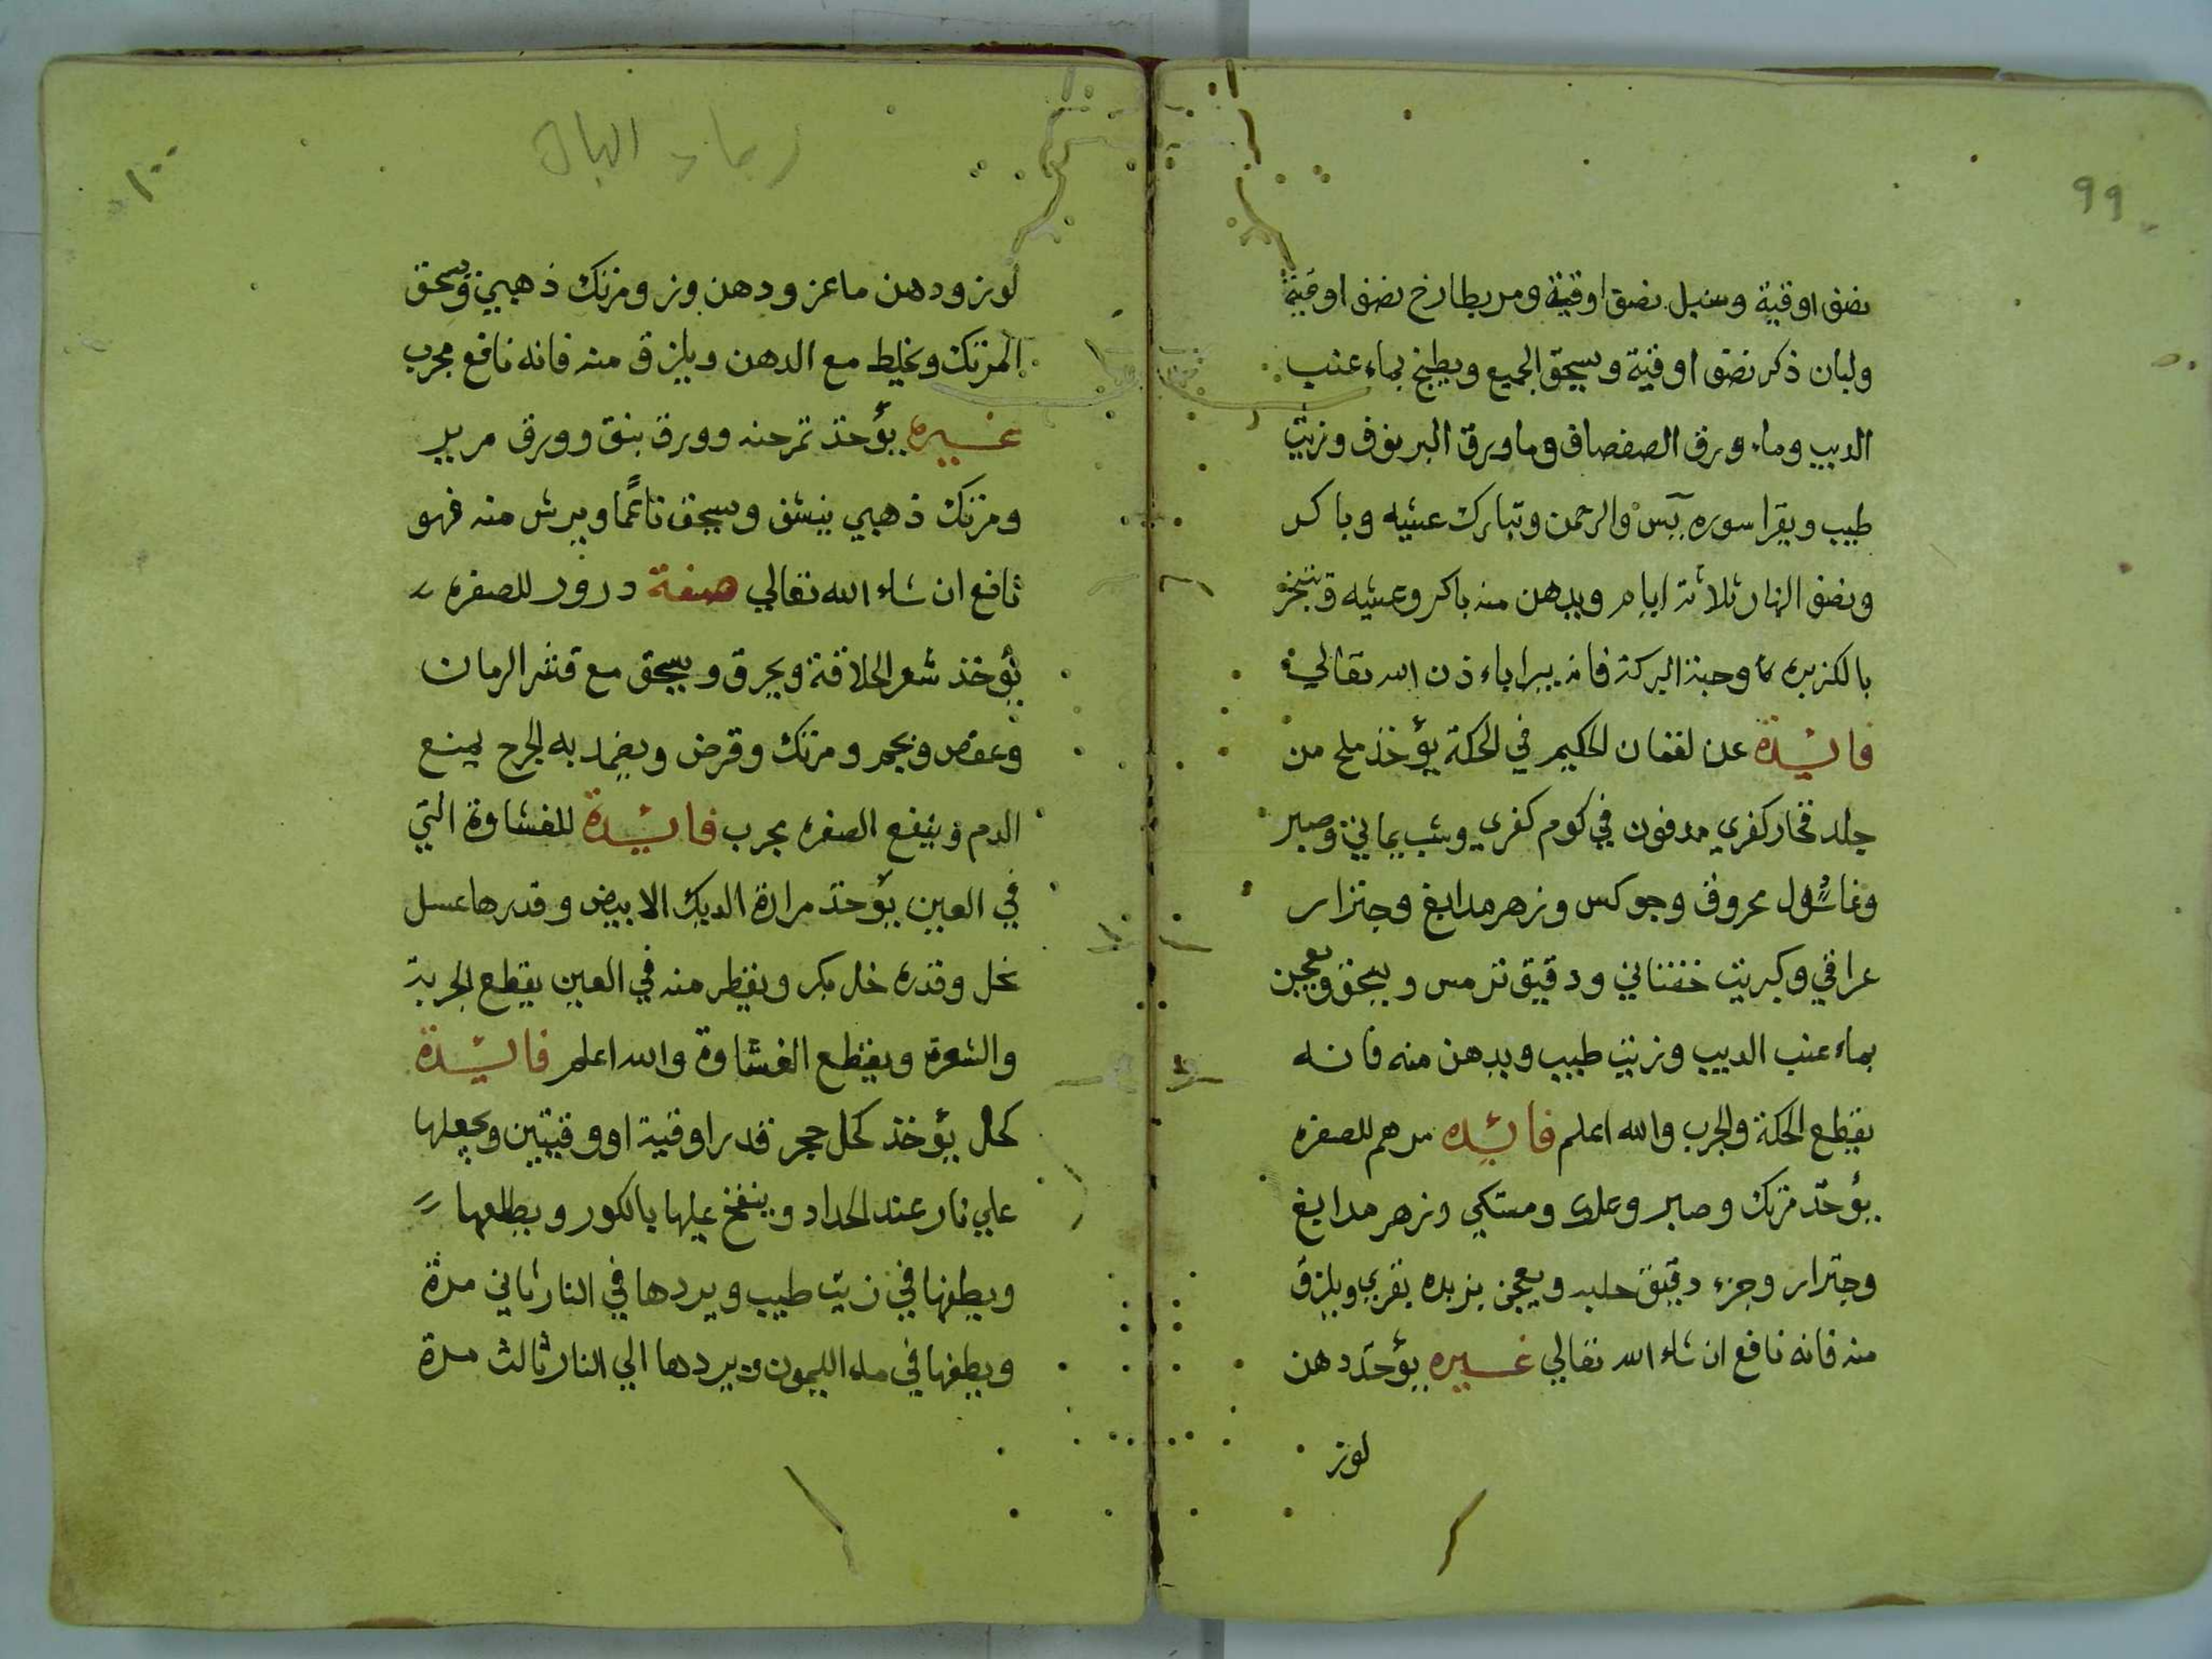 99
نصف اوقية وسنبل نصف اوقية ومريطارخ نصف اوقية
ولبان ذكر نصف اوقية ويسحق الجميع ويطبخ بماء عنب
الديب وماء ورق الصفصاف وما ورق البرنوف وزيت
طيب ويقرا سوره يس والرحمن وتبارك عشيه وباكر
ونصف النهار ثلاثة ايام ويدهن منه باكر وعشيه ويتبخر
بالكزبره وحبة البركة فانه يبرا باءذن الله تعالي
فائدة عن لقمان الحكيم في الحكة يؤخذ ملح من
جلد فخار كفري مدفون في كوم كفري وشب يماني وصبر
وغاسول محروق وجوكس وزهر مدابغ وجنزار
عراقي وكبريت ودقيق ترمس ويسحق ويعجن
بماء عنب الديب وزيت طيب ويدهن منه فانه
يقطع الحكة والجرب والله اعلم فائده مرهم للصفره
يؤخذ مرتك وصبر وعلك ومستكي وزهر مدابغ
وجنزار وجزء دقيق حلبه ويعجن بزبده بقري ويلزق
منه فانه نافع ان شاء الله تعالي غيره يؤخذ دهن
لوز
١٠٠
لوز ودهن ماعز ودهن وز ومرتك ذهبي ويسحق
المرتك ويخلط مع الدهن ويلزق منه فانه نافع مجرب
غيره يؤخذ تمرحنه وورق نبق وورق مربير
ومرتك ذهبي ينشف ويسحق ناعما ويرش منه فهو
نافع ان شاء الله تعالي صفة درور للصفره
يؤخذ شعر الحلاقة ويحرق ويسحق مع قشر الرمان
وعفص ومرتك وقرض ويضمد به الجرح يمنع
الدم وينفع الصفره مجرب فائدة للغشاوة التي
في العين يؤخذ مرارة الديك الابيض وقدرها عسل
نحل وقدره خل بكر ويقطر منه في العين يقطع الجربة
والشعرة ويقطع الغشاوة والله اعلم فائدة
كحل يؤخذ كحل حجر قدر اوقية او وقيتين ويجعلها
علي نار عند الحداد وينفخ عليها بالكور ويطلعها
ويطفها في زيت طيب ويردها في النار ثاني مرة
ويطفها في ماء الليمون ويردها الي النار ثالث مرة